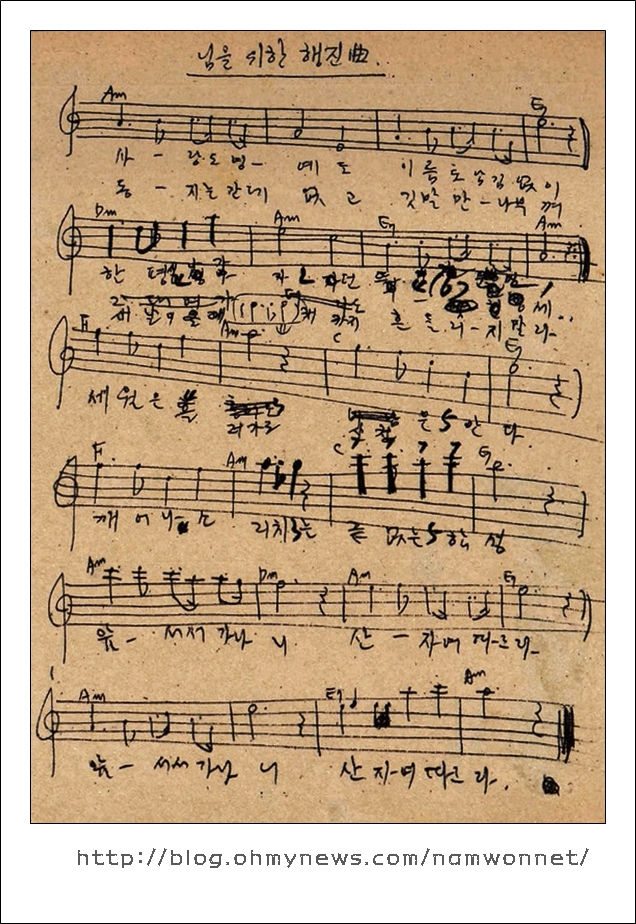 님을 위한 행진曲.
Am E7
사 - 랑도 명- 예도 이름도 남김 없이
동 - 지는 간데 없고 깃발만 - 나부껴
Dm Am E7 Am
한 평생
새 날이 올 때 까지 흔들리-지 말라-
F Am C E7
세월은 은 안 다
러가도
F Am C E7
깨어나 소 리치는 끝 없는 함 성
Am Dm Am E7
앞- 서서 가나 니 산 - 자여 따르라-
Am E7 Am
앞- 서서 가나 니 산 자여 따르라.
http://blog.ohmynews.com/namwonnet/